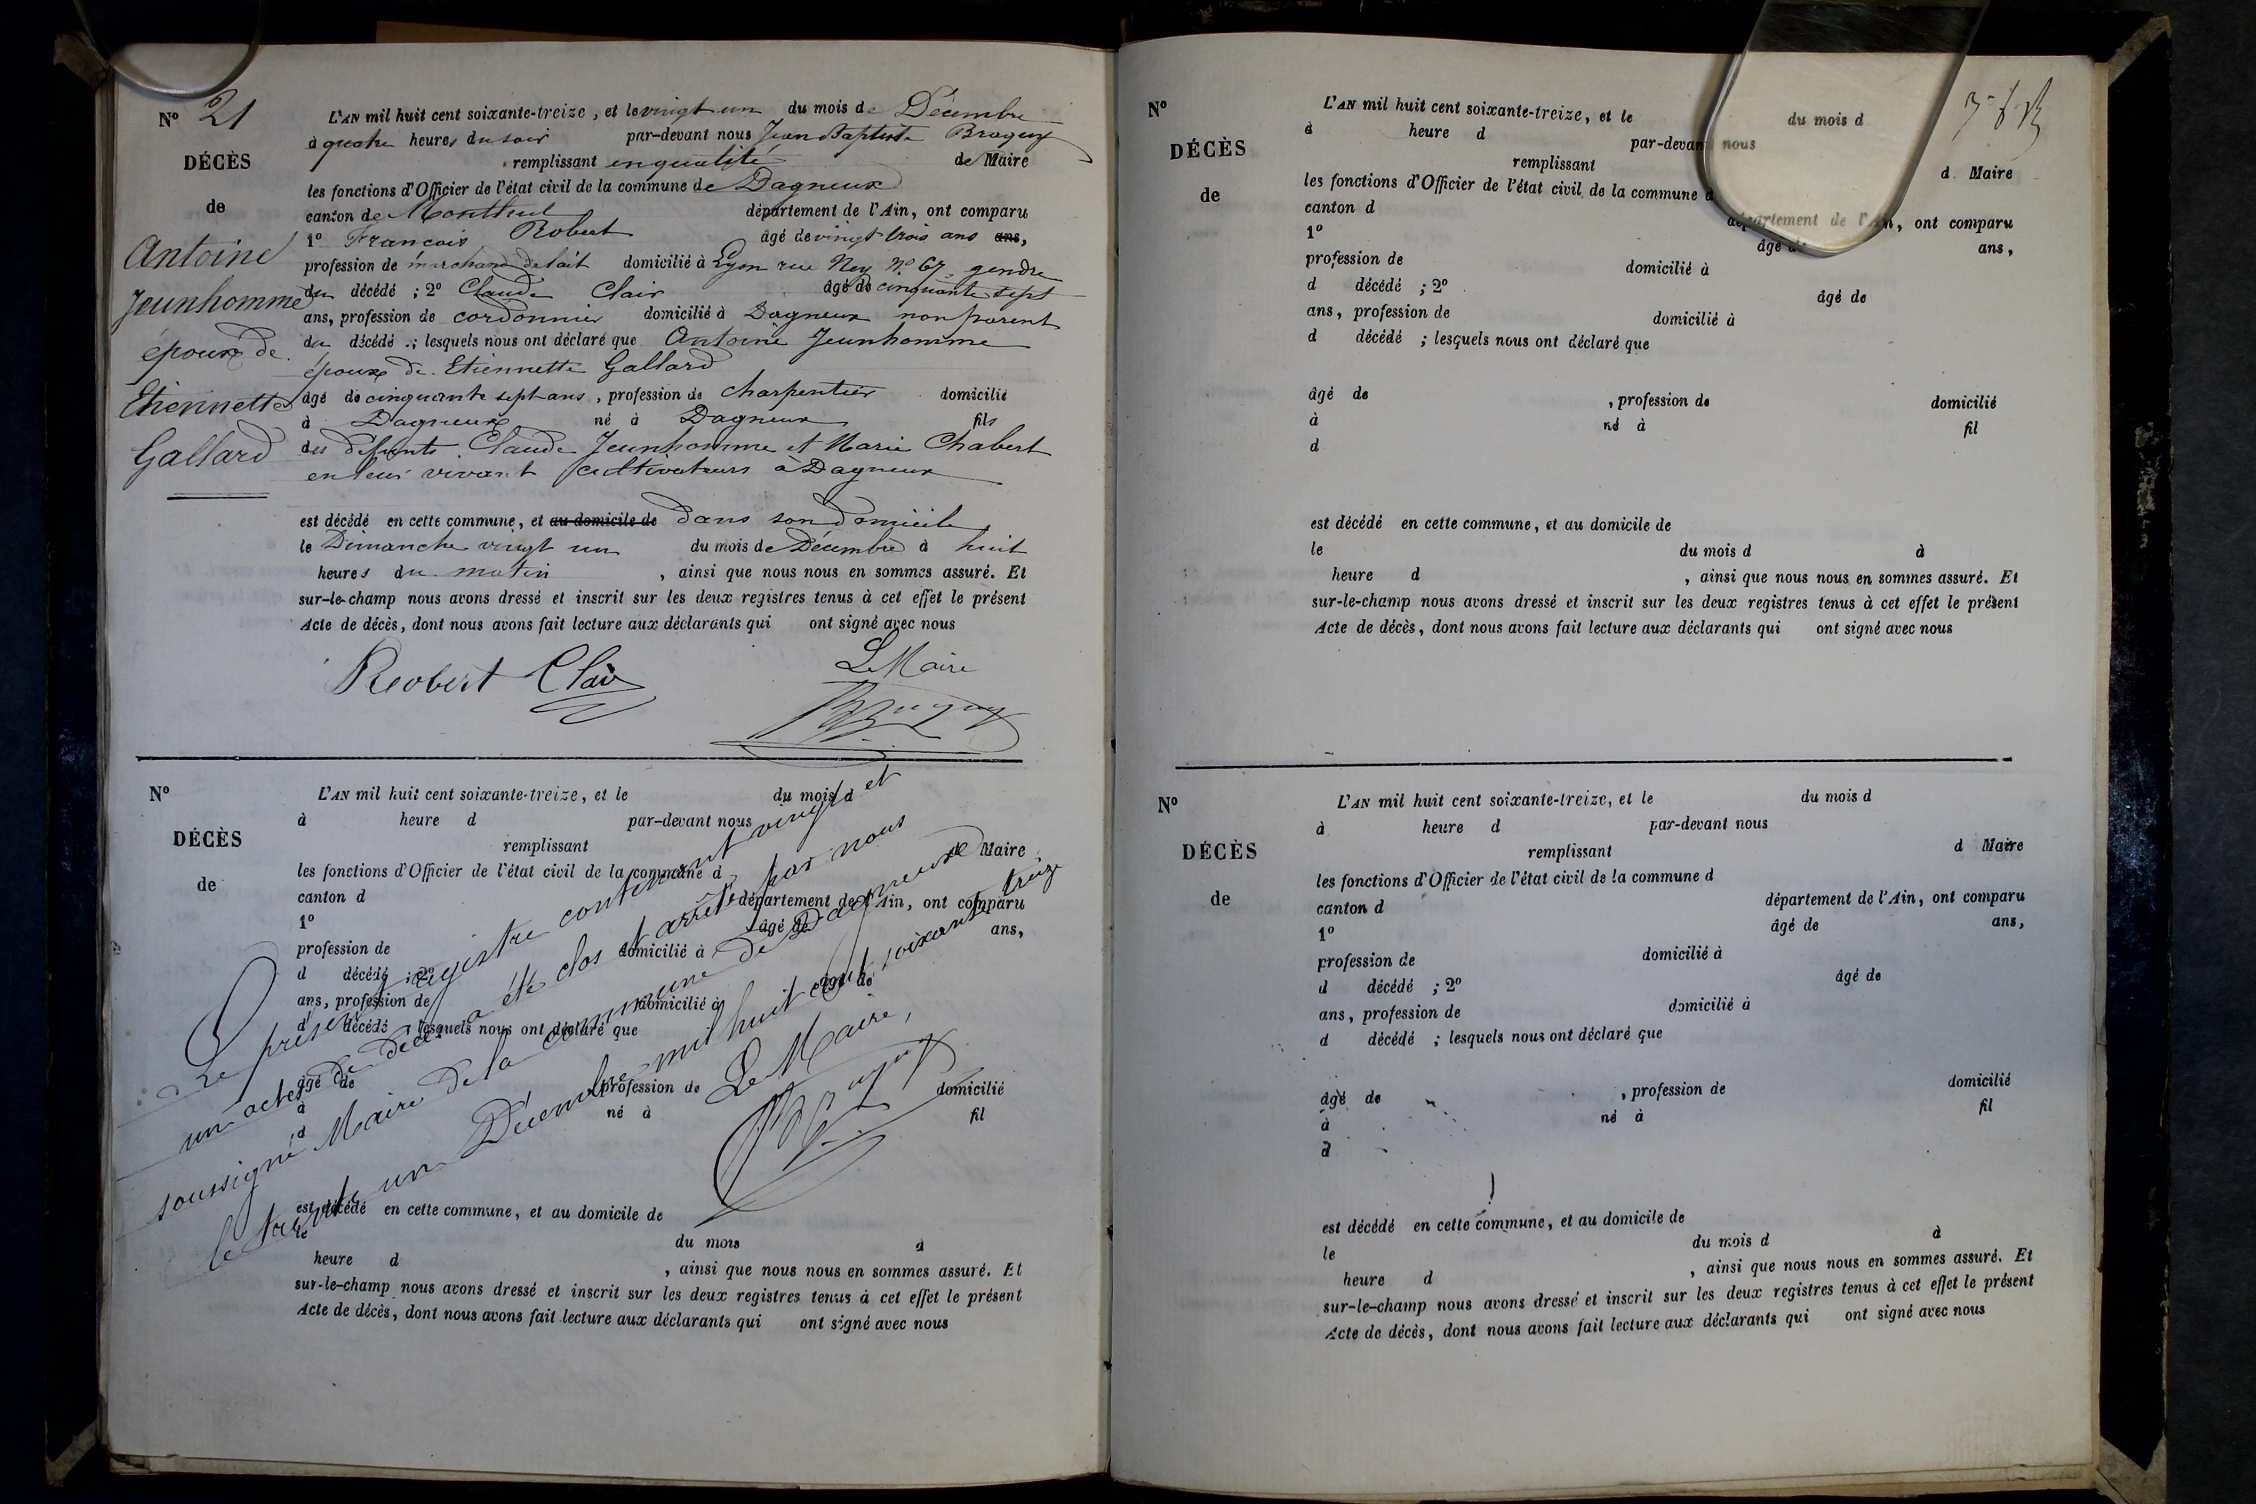 Nº 21
DÉCÈS
de
Antoine
Jeunhomme
époux de
Etiennette
Gallard
L'AN mil huit cent soixante-treize, et le vingt un du mois de Décembre
à quatre heures du soir par-devant nous Jean Baptiste
remplissant en qualité de Maire
les fonctions d'Officier de l'état civil de la commune de Dagneux
canton de Montluel département de l'Ain, ont comparu
1º François Robert âgé de vingt trois ans ans,
profession de marchand de lait domicilié à Lyon rue Ney Nº 67, gendre
du décédé ; 2º Claude Clair âgé de cinquante sept
ans, profession de cordonnier domicilié à Dagneux non parent
du décédé ; lesquels nous ont déclaré que Antoine Jeunhomme
époux de Etiennette Gallard
âgé de cinquante sept ans, profession de charpentier domicilié
à Dagneux né à Dagneux fils
des défunts Claude Jeunhomme et Marie Chabert
en leur vivant cultivateurs à Dagneux
est décédé en cette commune, et au domicile de dans son domicile
le Dimanche vingt un du mois de Décembre à huit
heures du matin , ainsi que nous nous en sommes assuré. Et
sur-le-champ nous avons dressé et inscrit sur les deux registres tenus à cet effet le présent
Acte de décès, dont nous avons fait lecture aux déclarants qui ont signé avec nous
Reobert Clair
Le Maire
Nº
DÉCÈS
de
L'AN mil huit cent soixante-treize, et le du mois d
à heure d par-devant nous
remplissant d Maire
les fonctions d'Officier de l'état civil de la commune d
canton d département de l'Ain, ont comparu
1º âgé de ans,
profession de domicilié à
d décédé ; 2º âgé de
ans, profession de domicilié à
d décédé ; lesquels nous ont déclaré que
âgé de , profession de domicilié
à né à fil
d
est décédé en cette commune, et au domicile de
le du mois d à
heure d , ainsi que nous nous en sommes assuré. Et
sur-le-champ nous avons dressé et inscrit sur les deux registres tenus à cet effet le présent
Acte de décès, dont nous avons fait lecture aux déclarants qui ont signé avec nous
Le présent registre contenant vingt et
un actes de décès a été clos et arrêté par nous
soussigné Maire de la commune de Dagneux
le trente un Décembre mil huit cent soixante treize
Le Maire,
Nº
DÉCÈS
de
L'AN mil huit cent soixante-treize, et le du mois d
à heure d par-devant nous
remplissant d Maire
les fonctions d'Officier de l'état civil de la commune d
canton d département de l'Ain, ont comparu
1º âgé de ans,
profession de domicilié à
d décédé ; 2º âgé de
ans, profession de domicilié à
d décédé ; lesquels nous ont déclaré que
âgé de , profession de domicilié
à né à fil
d
est décédé en cette commune, et au domicile de
le du mois d à
heure d , ainsi que nous nous en sommes assuré. Et
sur-le-champ nous avons dressé et inscrit sur les deux registres tenus à cet effet le présent
Acte de décès, dont nous avons fait lecture aux déclarants qui ont signé avec nous
Nº
DÉCÈS
de
L'AN mil huit cent soixante-treize, et le du mois d
à heure d par-devant nous
remplissant d Maire
les fonctions d'Officier de l'état civil de la commune d
canton d département de l'Ain, ont comparu
1º âgé de ans,
profession de domicilié à
d décédé ; 2º âgé de
ans, profession de domicilié à
d décédé ; lesquels nous ont déclaré que
âgé de , profession de domicilié
à né à fil
d
est décédé en cette commune, et au domicile de
le du mois d à
heure d , ainsi que nous nous en sommes assuré. Et
sur-le-champ nous avons dressé et inscrit sur les deux registres tenus à cet effet le présent
Acte de décès, dont nous avons fait lecture aux déclarants qui ont signé avec nous